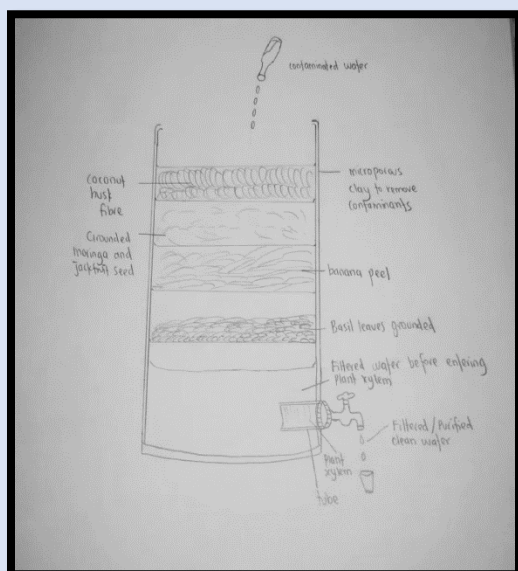 contaminated water
coconut
husk
fibre
microporous
clay to remove
contaminants
Grounded
moringa and
Jackfruit seed
banana peel
Basil leaves grounded
Filtered water before entering
plant xylem
Filtered/Purified
clean water
Plant
xylem
tube